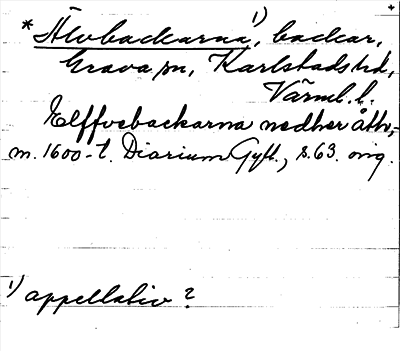 *Älvbackarna¹⁾, backar,
Grava sn, Karlstads hd,
Värml. l.
Elffvebackarna nedher åth,
m. 1600-t. Diarium Gyll., s. 63. orig.
¹⁾ appellativ?